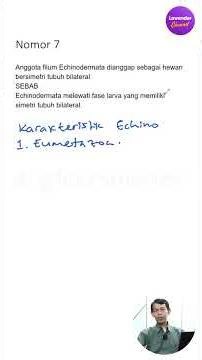 Lavender
Nomor 7
Anggota filum Echinodermata dianggap sebagai hewan
bersimetri tubuh bilateral
SEBAB
Echinodermata melewati fase larva yang memiliki
simetri tubuh bilateral.
Karakteristik Echino
1. Eumetazoa.